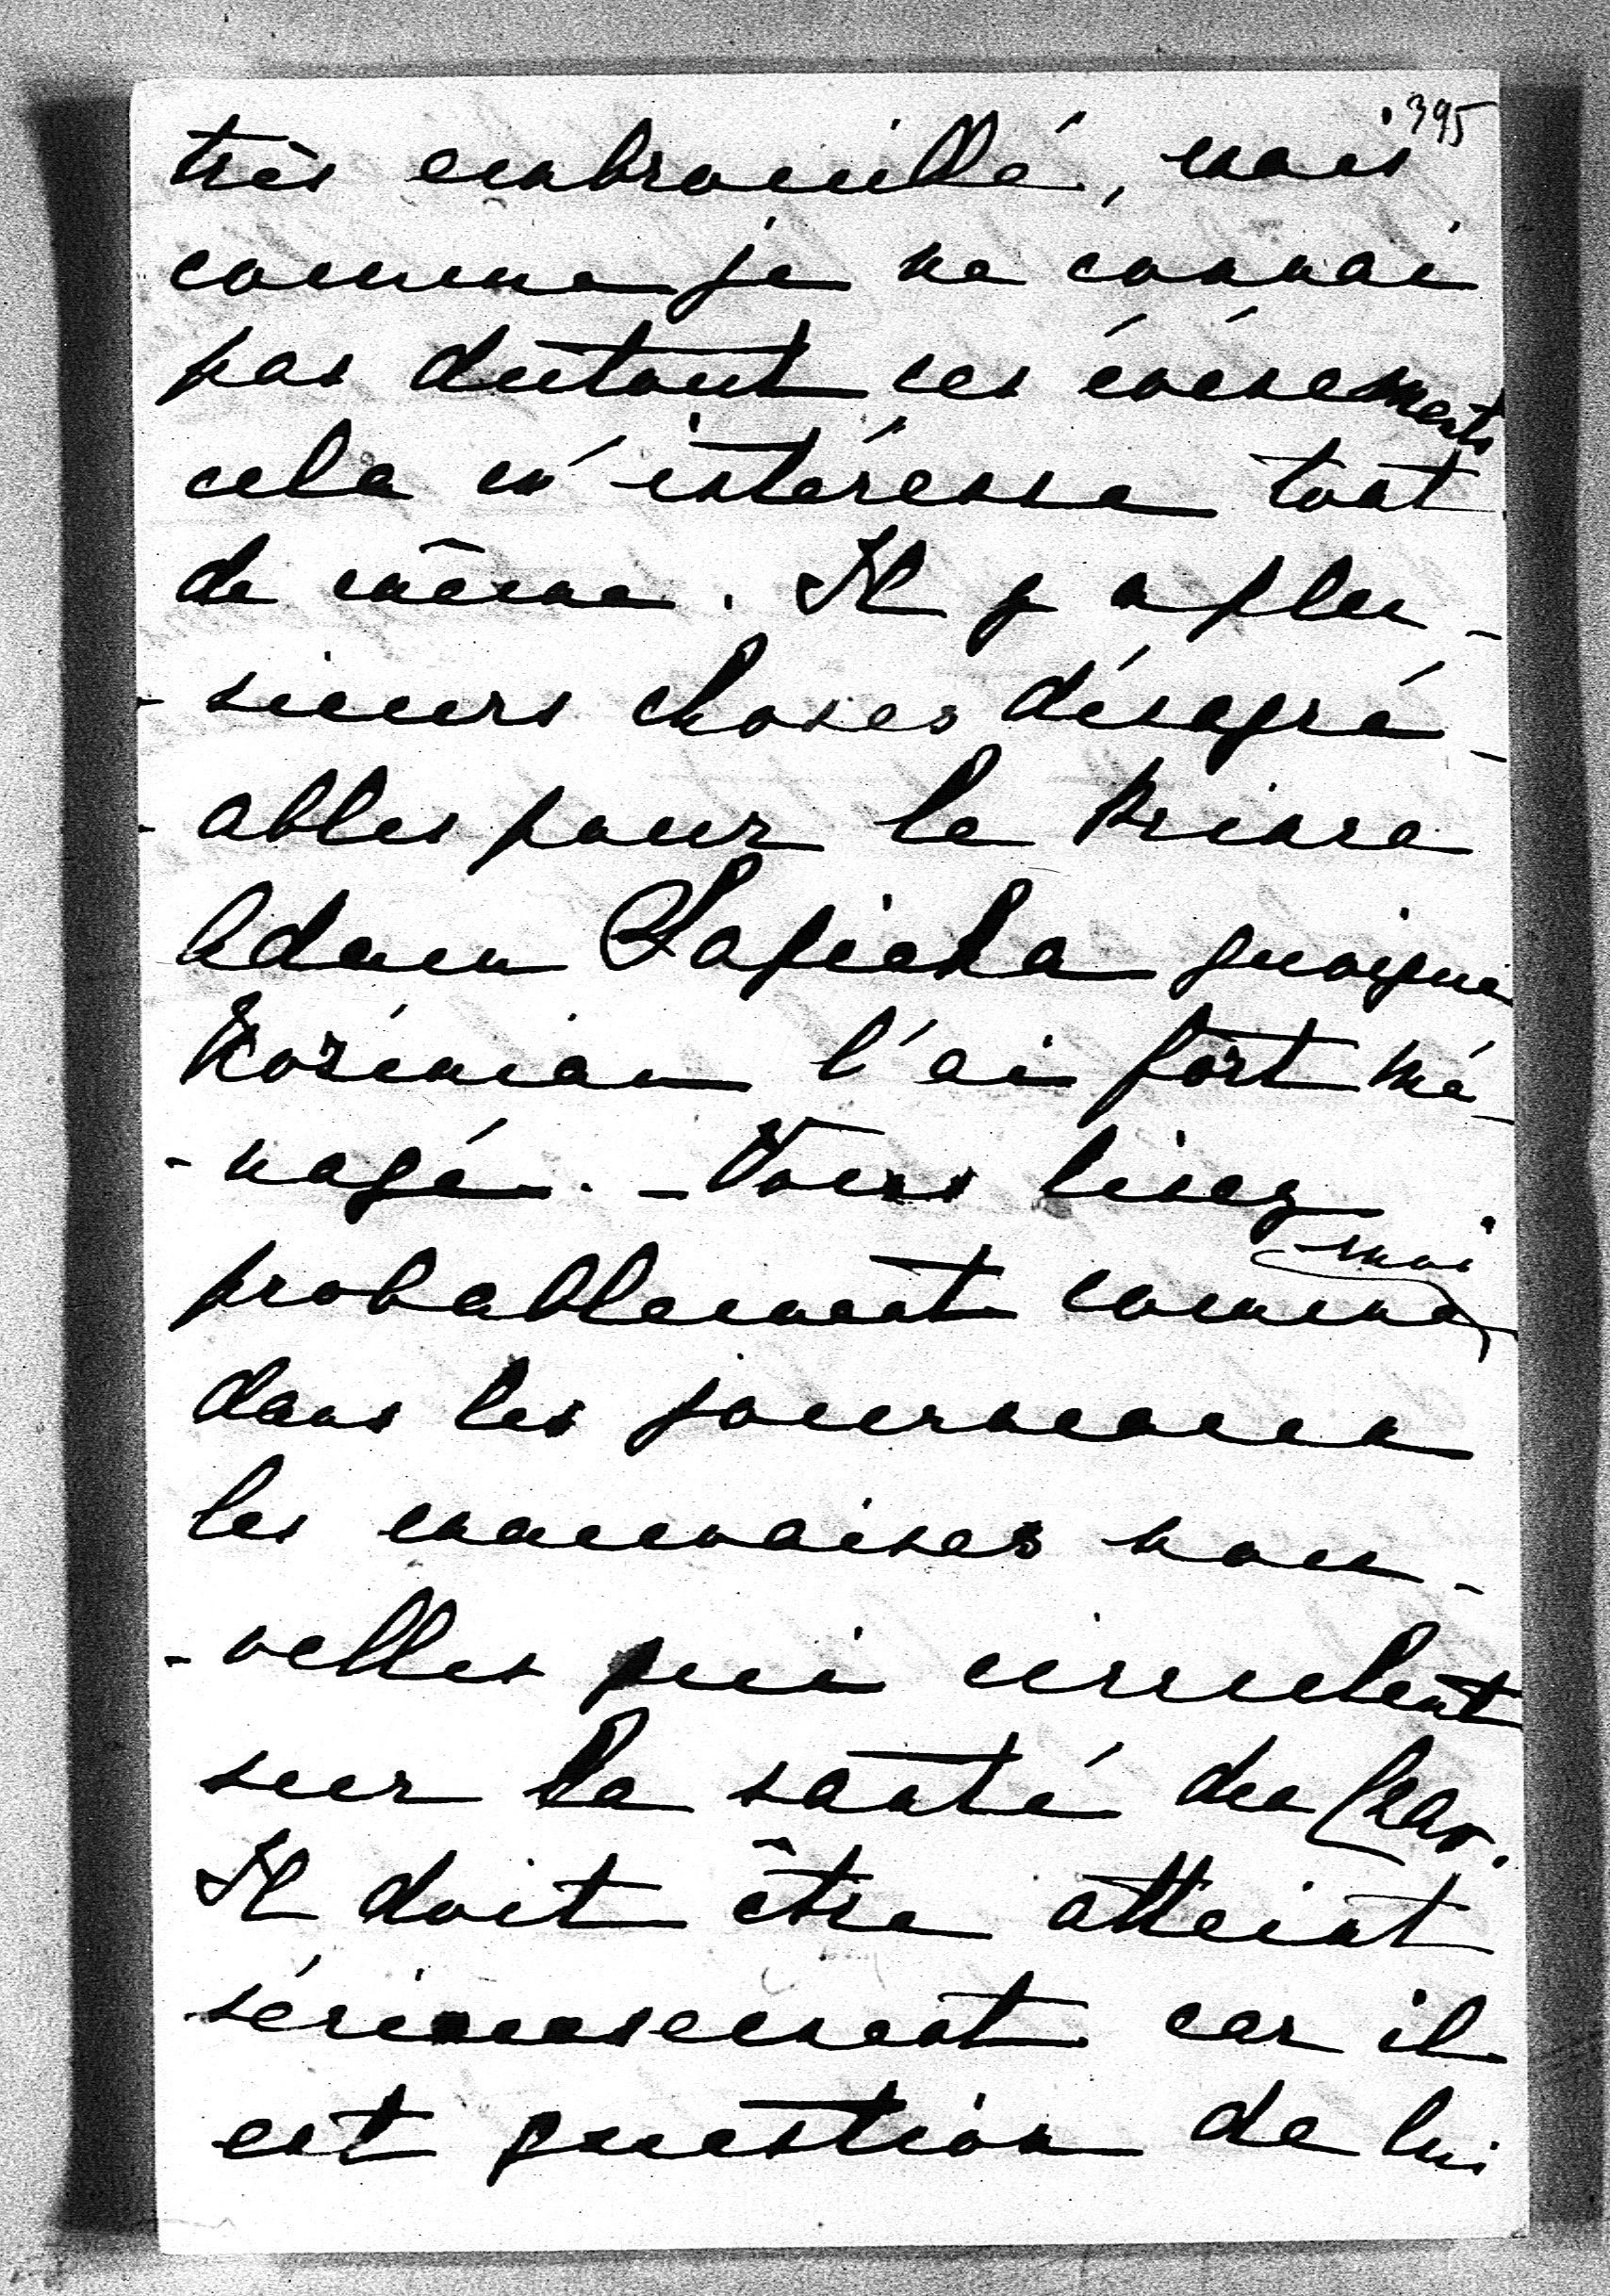 395
très embrouillé, mais
comme je ne connai
pas dutout ces évènements
cela m'intéressa tout
de même. Il y a plu-
-sieurs choses désagré-
-ables pour le Prince
Adam Sapieha quoique
Kozmian l'ai fort mé-
-nagé. - Vous lisez
probablement comme moi
dans les journeaux
les mauvaises nou-
-velles qui circulent
sur la santé du Czar.
Il doit être atteint
sérieusement car il
est question de lui